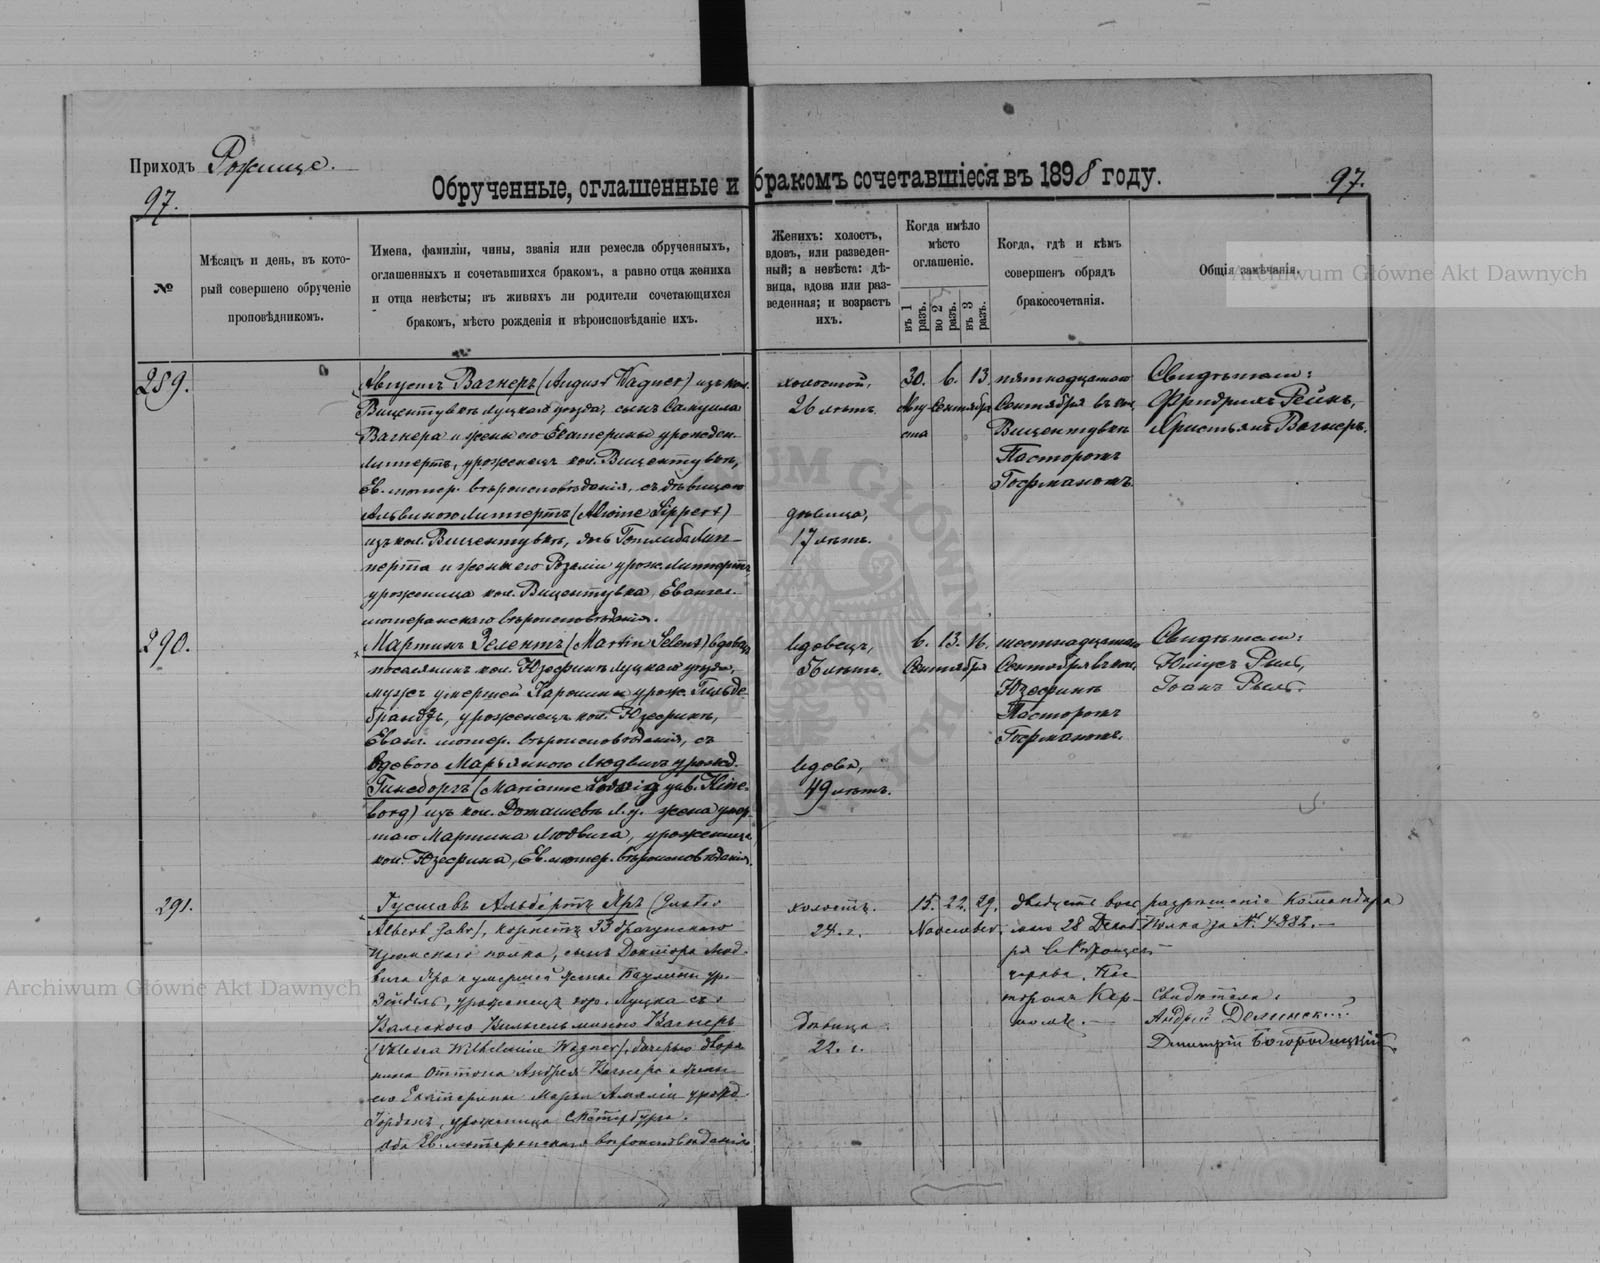 Приходъ Рожище.
Обрученные, оглашенные и бракомъ сочетавшіеся въ 1898 году.
97.
97.
№
Мѣсяцъ и день, въ кото-
рый совершено обрученіе
проповѣдникомъ.
Имена, фамиліи, чины, званія или ремесла обрученныхъ,
оглашенныхъ и сочетавшихся бракомъ, а равно отца жениха
и отца невѣсты; въ живыхъ ли родители сочетающихся
бракомъ, мѣсто рожденія и вѣроисповѣданіе ихъ.
Женихъ: холостъ,
вдовъ, или разведен-
ный; а невѣста: дѣ-
вица, вдова или раз-
веденная; и возрастъ
ихъ.
Когда имѣло
мѣсто
оглашеніе.
въ 1 разъ.
во 2 разъ.
въ 3 разъ.
Когда, гдѣ и кѣмъ
совершенъ обрядъ
бракосочетанія.
Общія замѣчанія.
Archiwum Główne Akt Dawnych
289.
Августъ Вагнеръ (August Wagner) изъ кол.
Вицентувкѣ луцкаго уѣзда, сынъ Самуила
Вагнера и жены его Екатерины урожден.
Липпертъ, уроженецъ кол. Вицентувкѣ,
Ев. лютер. вѣроисповѣданія, съ дѣвицею
Альвиною Липпертъ (Alwine Lippert)
изъ кол. Вицентувкѣ, дочь Готлиба Лип-
перта и жены его Розаліи урож. Липпертъ,
уроженица кол. Вицентувка, Евангел.
лютеранскаго вѣроисповѣданія.
холостой,
26 лѣтъ.
дѣвица,
17 лѣтъ.
30. 6. 13.
Авгу- Сентября
ста
пятнадцатаго
Сентября въ кол.
Вицентувкѣ
Пасторомъ
Гофманомъ
Свидѣтели:
Фридрихъ Рейнъ,
Христьянъ Вагнеръ.
290.
Мартинъ Зелентъ (Martin Selent) вдовецъ
поселянинъ кол. Юзефинъ Луцкаго уѣзда,
мужъ умершей Каролины урож. Гильде-
брандъ, уроженецъ кол. Юзефинъ,
Еванг. лютер. вѣроисповѣданія, съ
вдовою Марьянною Людвигъ урожд.
Гинеборгъ (Marianne Ludwig geb. Hine-
borg) изъ кол. Домашевъ Л. у. жена умер-
шаго Мартина Людвига, уроженица
кол. Юзефина, Ев. лютер. вѣроисповѣданія
вдовецъ,
56 лѣтъ.
вдова,
49 лѣтъ.
6. 13. 16.
Сентября
шестнадцатаго
Сентября въ кол.
Юзефинъ
Пасторомъ
Гофманомъ.
Свидѣтели:
Юліусъ Рыль,
Іоанъ Рыль.
291.
Густавъ Альбертъ Яръ (Gustav
Albert Jahr), корнетъ 33 драгунскаго
Изюмскаго полка, сынъ Доктора Люд-
вига Яра и умершей жены Паулины ур.
Зейдель, уроженецъ гор. Луцка съ
Валескою Вильгельминою Вагнеръ
(Valeska Wilhelmine Wagner), дочерью дворя-
нина Оттона Андрея Вагнера и жены
его Екатерины Маріи Амаліи урожд.
Іорданъ, уроженица СПетербурга.
Оба Ев. лютеранскаго вѣроисповѣданія.
холостъ.
24. г.
Дѣвица
22. г.
15. 22. 29.
Ноября
двадцать вось-
маго 28 Декаб
ря въ Рожищен
церкви. Пас
торомъ Кер-
момъ.
разрѣшеніе Командира
Полка за № 4382.
Свидѣтели:
Дмитрій Богородицкій
Archiwum Główne Akt Dawnych